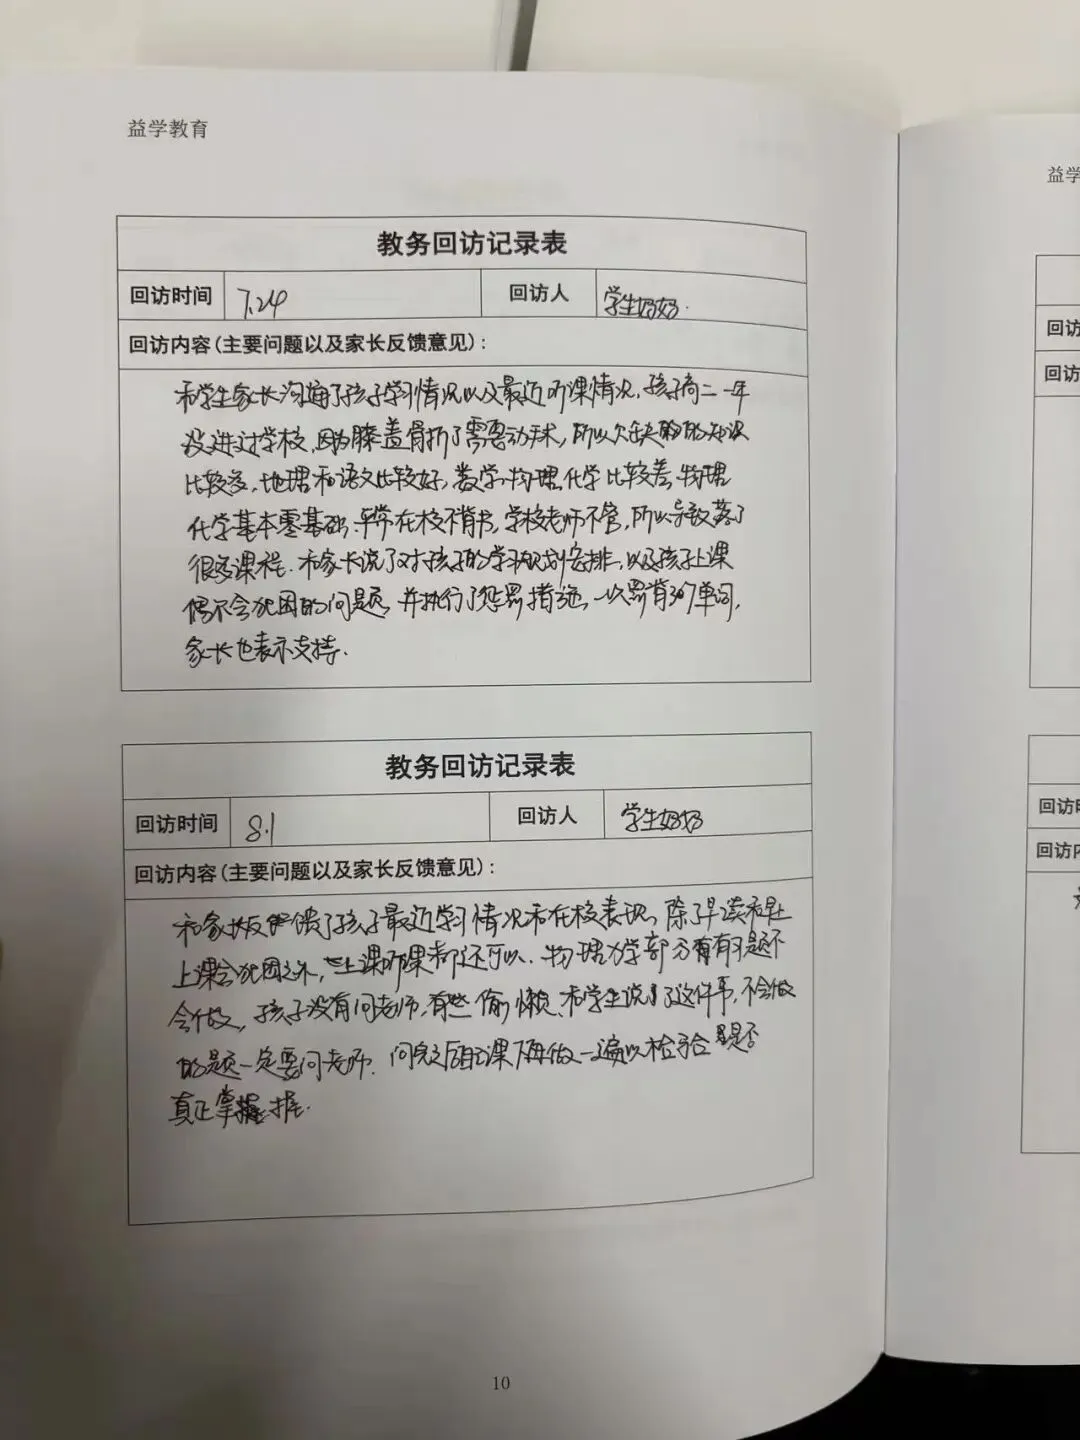 益学教育
益学
教务回访记录表
回访时间 7.24 回访人 学生妈妈.
回访内容(主要问题以及家长反馈意见):
和学生家长沟通了孩子学习情况以及最近听课情况,孩子高二一年
没进过学校,因为膝盖骨折了需要动手术,所以欠缺的知识
比较多,地理和语文比较好,数学,物理,化学比较差,物理
化学基本零基础,平常在校不背书,学校老师不管,所以导致落了
很多课程.和家长说了对孩子的学习规划安排,以及孩子上课
偶尔会犯困的问题,并执行了惩罚措施,一次罚背30个单词,
家长也表示支持.
教务回访记录表
回访时间 8.1 回访人 学生妈妈
回访内容(主要问题以及家长反馈意见):
和家长反馈了孩子最近学习情况和在校表现,除了早读和早上
上课会犯困之外,上课听课都还可以.物理力学部分有有习题不
会做,孩子没有问老师,有些偷懒,和学生说了这件事,不会做
的题一定要问老师.问完之后自己课下再做一遍以检验是否
真正掌握.
10
回访
回访
回访时
回访内